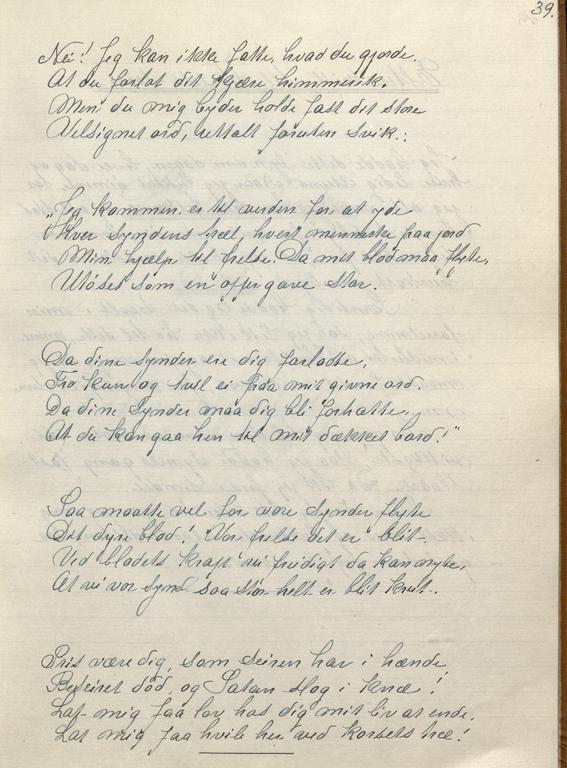 39.
Nei! Jeg kan ikke fatte, hvad du gjorde.
At du forlot dit kjære himmerik.
Men du mig byder holde fast dit store
Velsignet ord, uttalt foruten svik.:
"Jeg kommen er til verden for at yde
Hver syndens træl, hvert menneske paa jord
Min hjælp til frelse. Da mit blod maa flyte,
Utøses som en offergave stor.
Da dine synder ere dig forladte,
Tro kun og tvil ei paa mit givne ord.
Da dine synder maa dig bli forhatte,
At du kan gaa hen til mit dækket bord!"
Saa maatte vel for vore synder flyte
Det dyre blod! Vor frelse det er blit.
Ved blodets kraft vi freidigt da kan bryte,
At vi vor synd saa stor helt er blit kvit.
Pris være dig, som seiren har i hænde,
Beseiret død, og Satan slog i knæ!
Lat mig faa lov hos dig mit liv at ende,
Lat mig faa hvile her ved korsets træ!